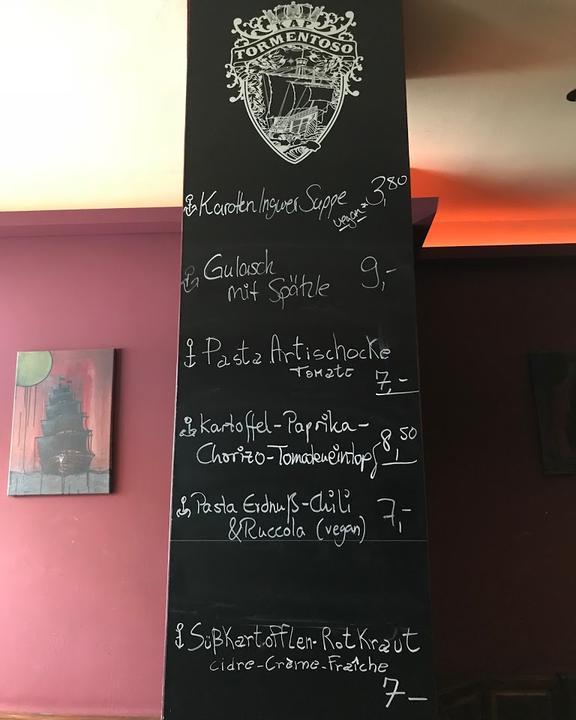 KAP
TORMENTOSO
Karotten Ingwer Suppe 3,80
vegan
Gulasch 9,-
mit Spätzle
Pasta Artischocke
Tomate
7,-
Kartoffel-Paprika-
Chorizo-Tomateneintopf 8,50
Pasta Erdnuß-Chili 7,-
&Ruccola (vegan)
Süßkartofflen-RotKraut
Cidre-Crème-Fraîche
7-